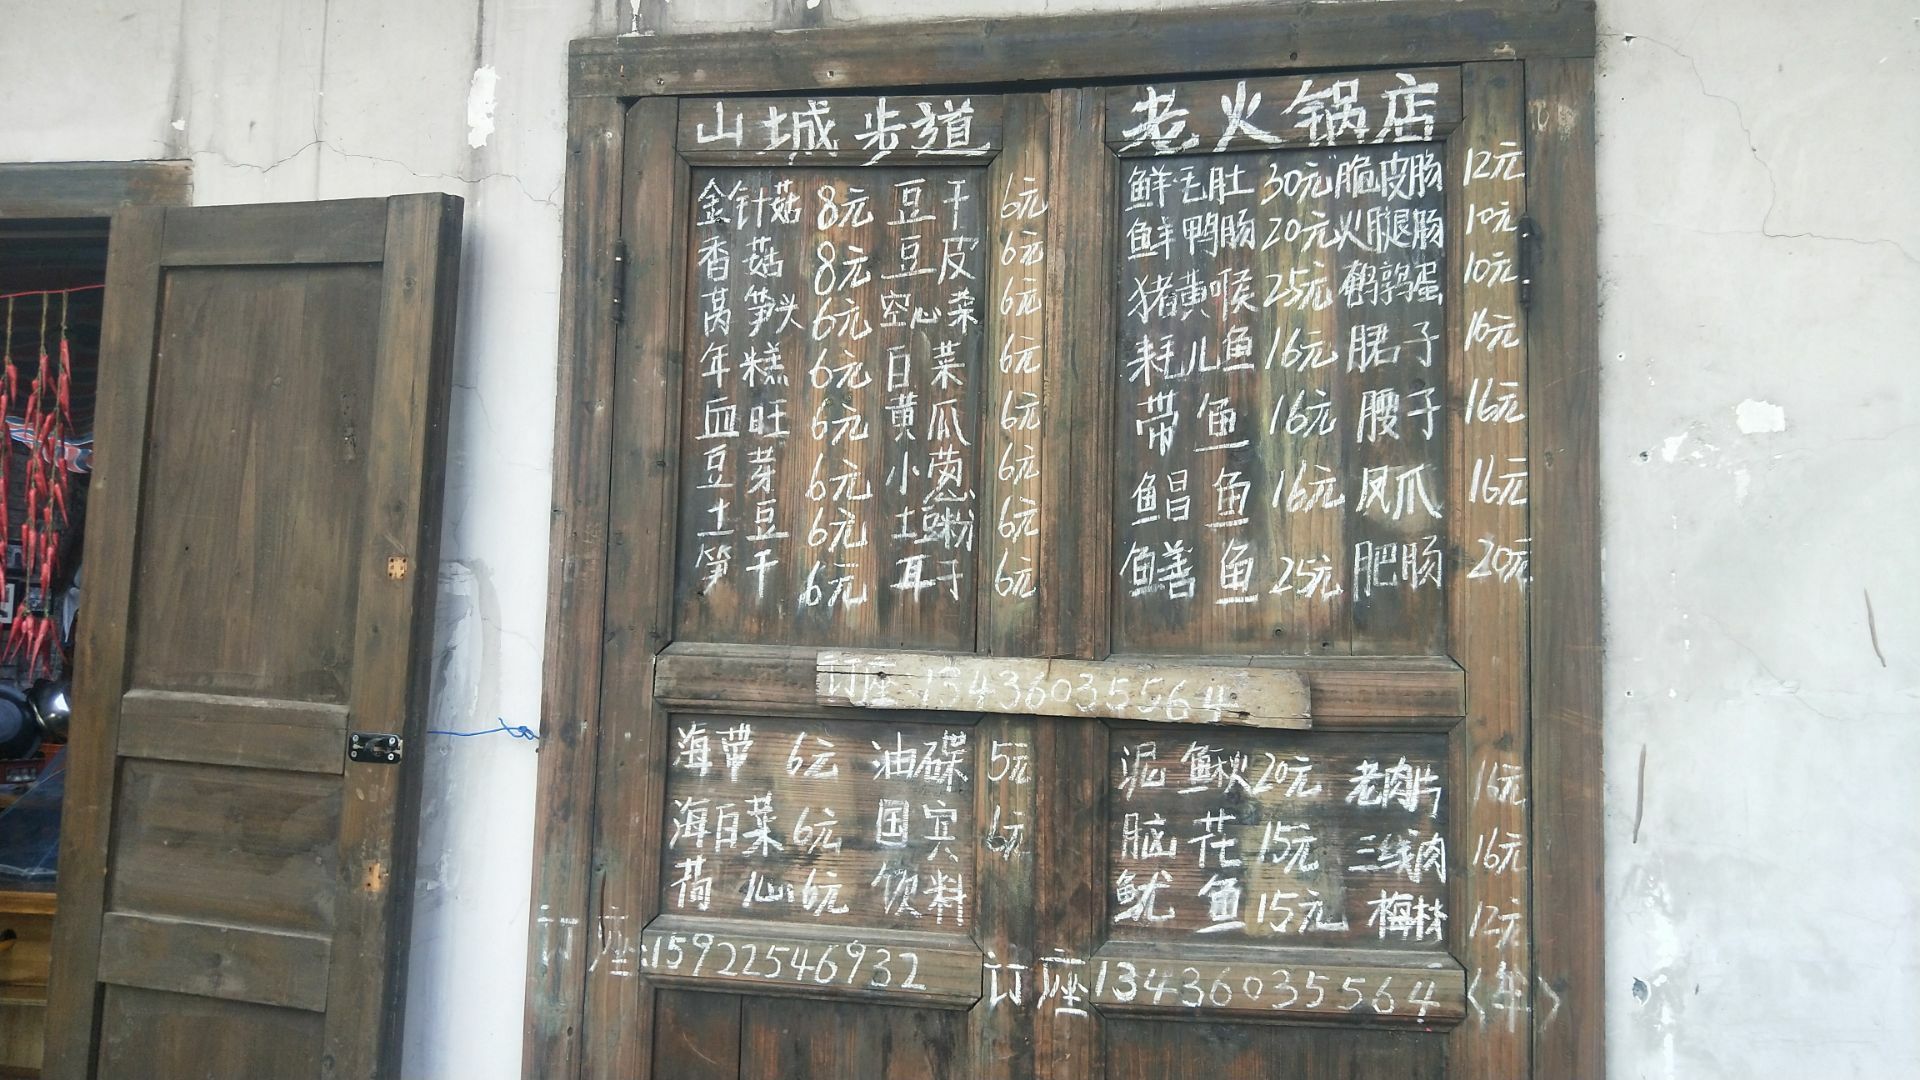 山城步道 老火锅店
金针菇 8元 豆干 6元
香菇 8元 豆皮 6元
莴笋头 6元 空心菜 6元
年糕 6元 白菜 6元
血旺 6元 黄瓜 6元
豆芽 6元 小葱 6元
土豆 6元 土豆粉 6元
笋干 6元 耳子 6元
鲜毛肚 30元 脆皮肠 12元
鲜鸭肠 20元 火腿肠 10元
猪黄喉 25元 鹌鹑蛋 10元
耗儿鱼 16元 䐃子 16元
带鱼 16元 腰子 16元
鲳鱼 16元 凤爪 16元
鳝鱼 25元 肥肠 20元
订座:13436035564
海带 6元 油碟 5元
海白菜 6元 国宾 6元
荷心 6元 饮料
泥鳅 20元 老肉片 16元
脑花 15元 三线肉 16元
鱿鱼 15元 梅林 12元
订座:15922546932 订座13436035564